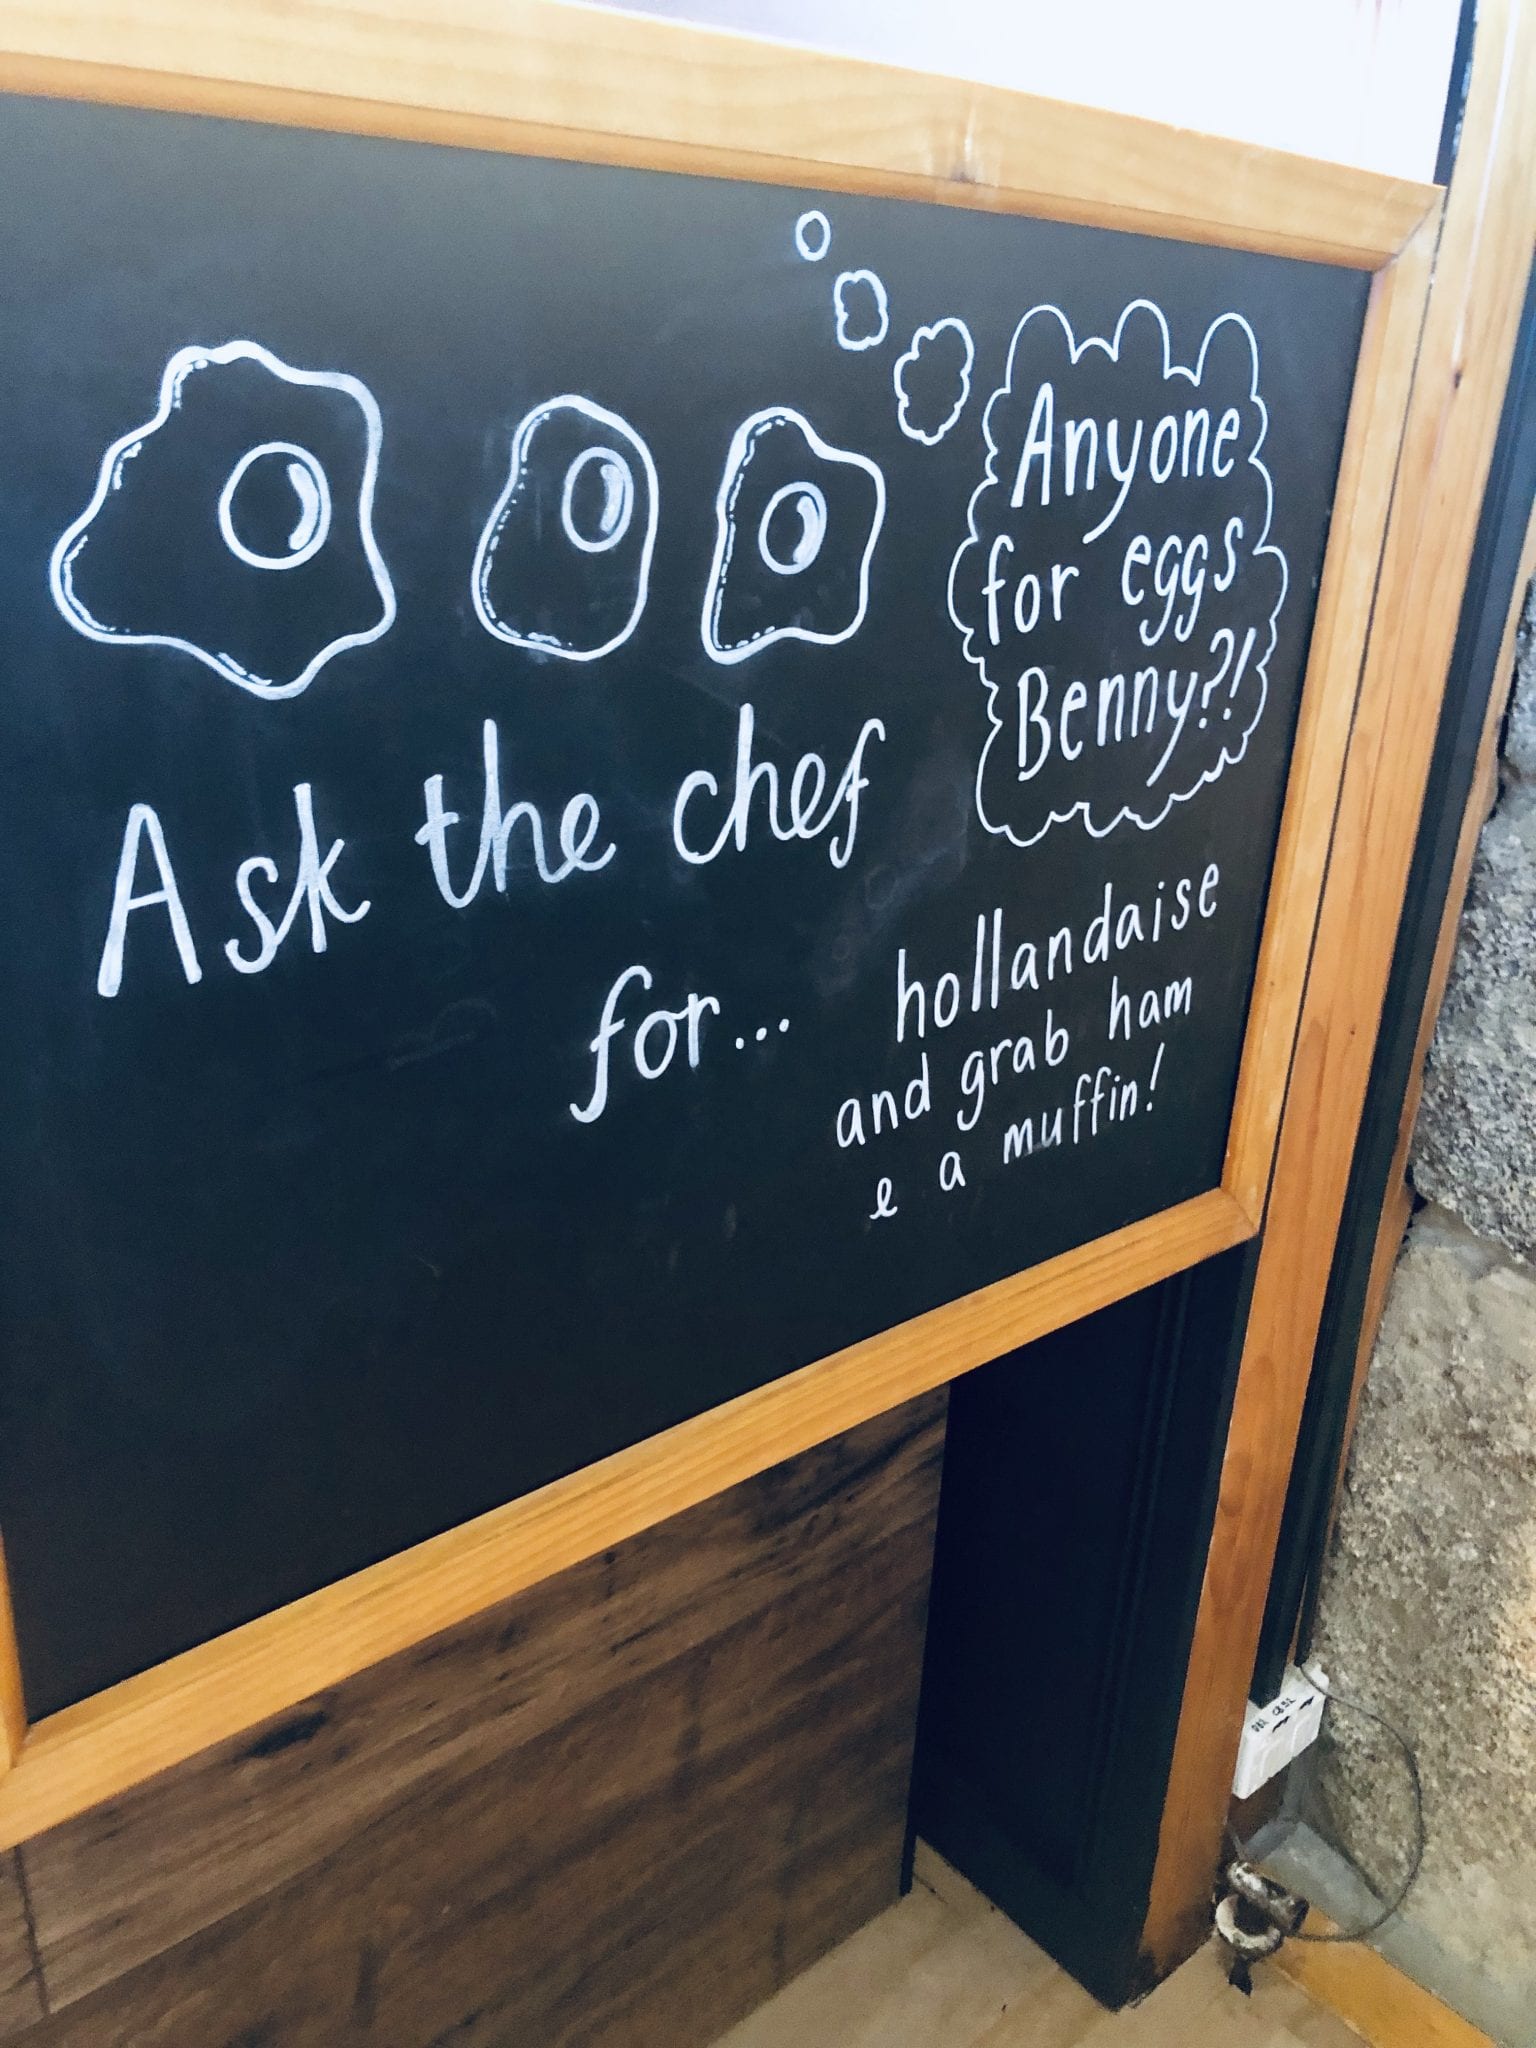 Anyone
for eggs
Benny?!
Ask the chef
for...
hollandaise
and grab ham
& a muffin!